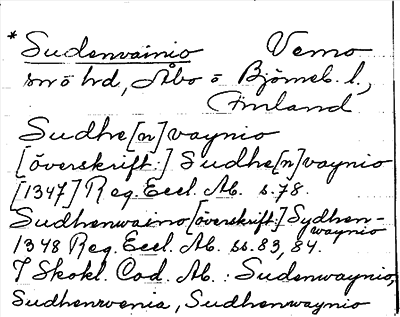 *Sudenvainio Vemo
smö hd, Åbo o Björneb. l.,
Finland
Sudhe[n]vaynio
[överskrift:] Sudhe[n]vaynio
[1347] Reg. Eccl. Ab. s. 78.
Sudhenwaino [överskrift:] Sydhen-
waynio
1348 Reg. Eccl. Ab. ss. 83, 84.
I Skokl. Cod. Ab.: Sudenwaynio,
Sudhenwenia, Sudhenwaynio